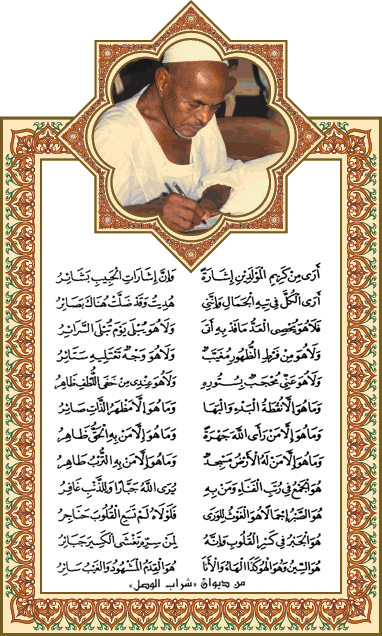 أرى من كريم المولدين إشارة وإن إشارات الحبيب بشائر
أرى الكل في تيه الجمال وإنني هديت وقد ضلت هناك بصائر
فلا هو يحصي العد ما قد به أتى ولا هو يبلى يوم تبلى السرائر
ولا هو من فرط الظهور مغيب ولا هو وجه تعتليه ستائر
ولا هو عني محجب بستوره ولا هو عندي من خفي اللطف ظاهر
وما هو إلا نقطة البدء والبها وما هو إلا مظهر الذات صائر
وما هو إلا من رأى الله جهرة وما هو إلا من به الحق ظاهر
وما هو إلا من له الأرض مسجد وما هو إلا من به الترب طاهر
هو الجمع في رتب العلاء ومن به يرى الله جبارا وللذنب غافر
هو الصبر إجمالا هو الغوث للورى فلولاه لم تسع القلوب حناجر
هو الجبر في كسر القلوب وإنه لمن سره تغشى الكسير جبائر
هو السين وهو الهو كذا الهاء والأنا هو القدم المشهود والغيب سائر
من ديوان «شراب الوصل»